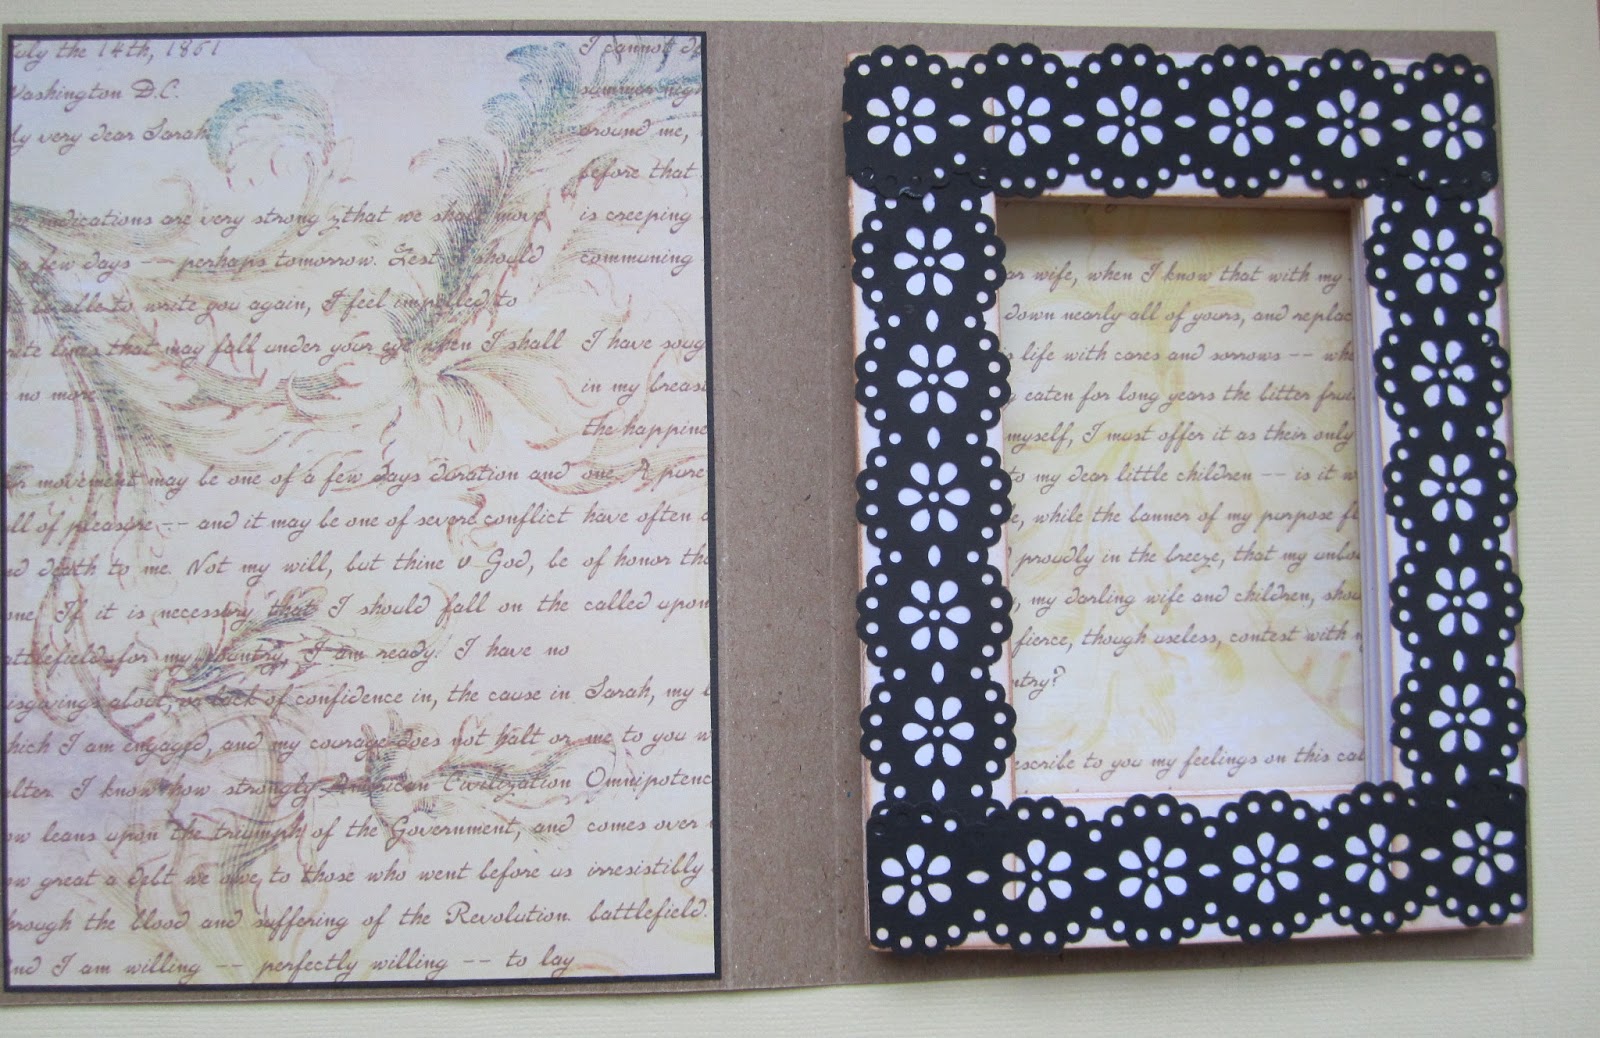 July the 14th, 1861
Washington D.C.
My very dear Sarah
indications are very strong that we shall move
a few days -- perhaps tomorrow. Lest I should
be able to write you again, I feel impelled to
write lines that may fall under your eye when I shall
no more
movement may be one of a few days duration and
all of pleasure -- and it may be one of severe conflict
and death to me. Not my will, but thine O God, be
one. If it is necessary that I should fall on the
battlefield for my country, I am ready. I have no
misgivings about, or lack of confidence in, the cause in
which I am engaged, and my courage does not halt or
alter. I know how strongly American Civilization
now leans upon the triumph of the Government, and
how great a debt we owe to those who went before us
through the blood and suffering of the Revolution.
And I am willing -- perfectly willing -- to lay
I cannot de
summer nigh
around me,
before that
is creeping
communing
I have soug
in my breas
the happine
one. A pure
have often
of honor tha
called upon
Sarah, my
me to you w
Omnipotenc
comes over
irresistibly
battlefield.
ar wife, when I know that with my
down nearly all of yours, and replac
life with cares and sorrows -- whe
eaten for long years the bitter frui
myself, I must offer it as their only
to my dear little children -- is it w
while the banner of my purpose fl
proudly in the breeze, that my unbo
my darling wife and children, shou
fierce, though useless, contest with
ntry?
escribe to you my feelings on this cal